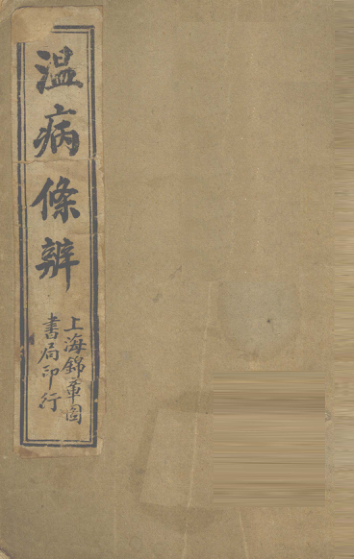 温病條辨
上海錦章圖
書局印行